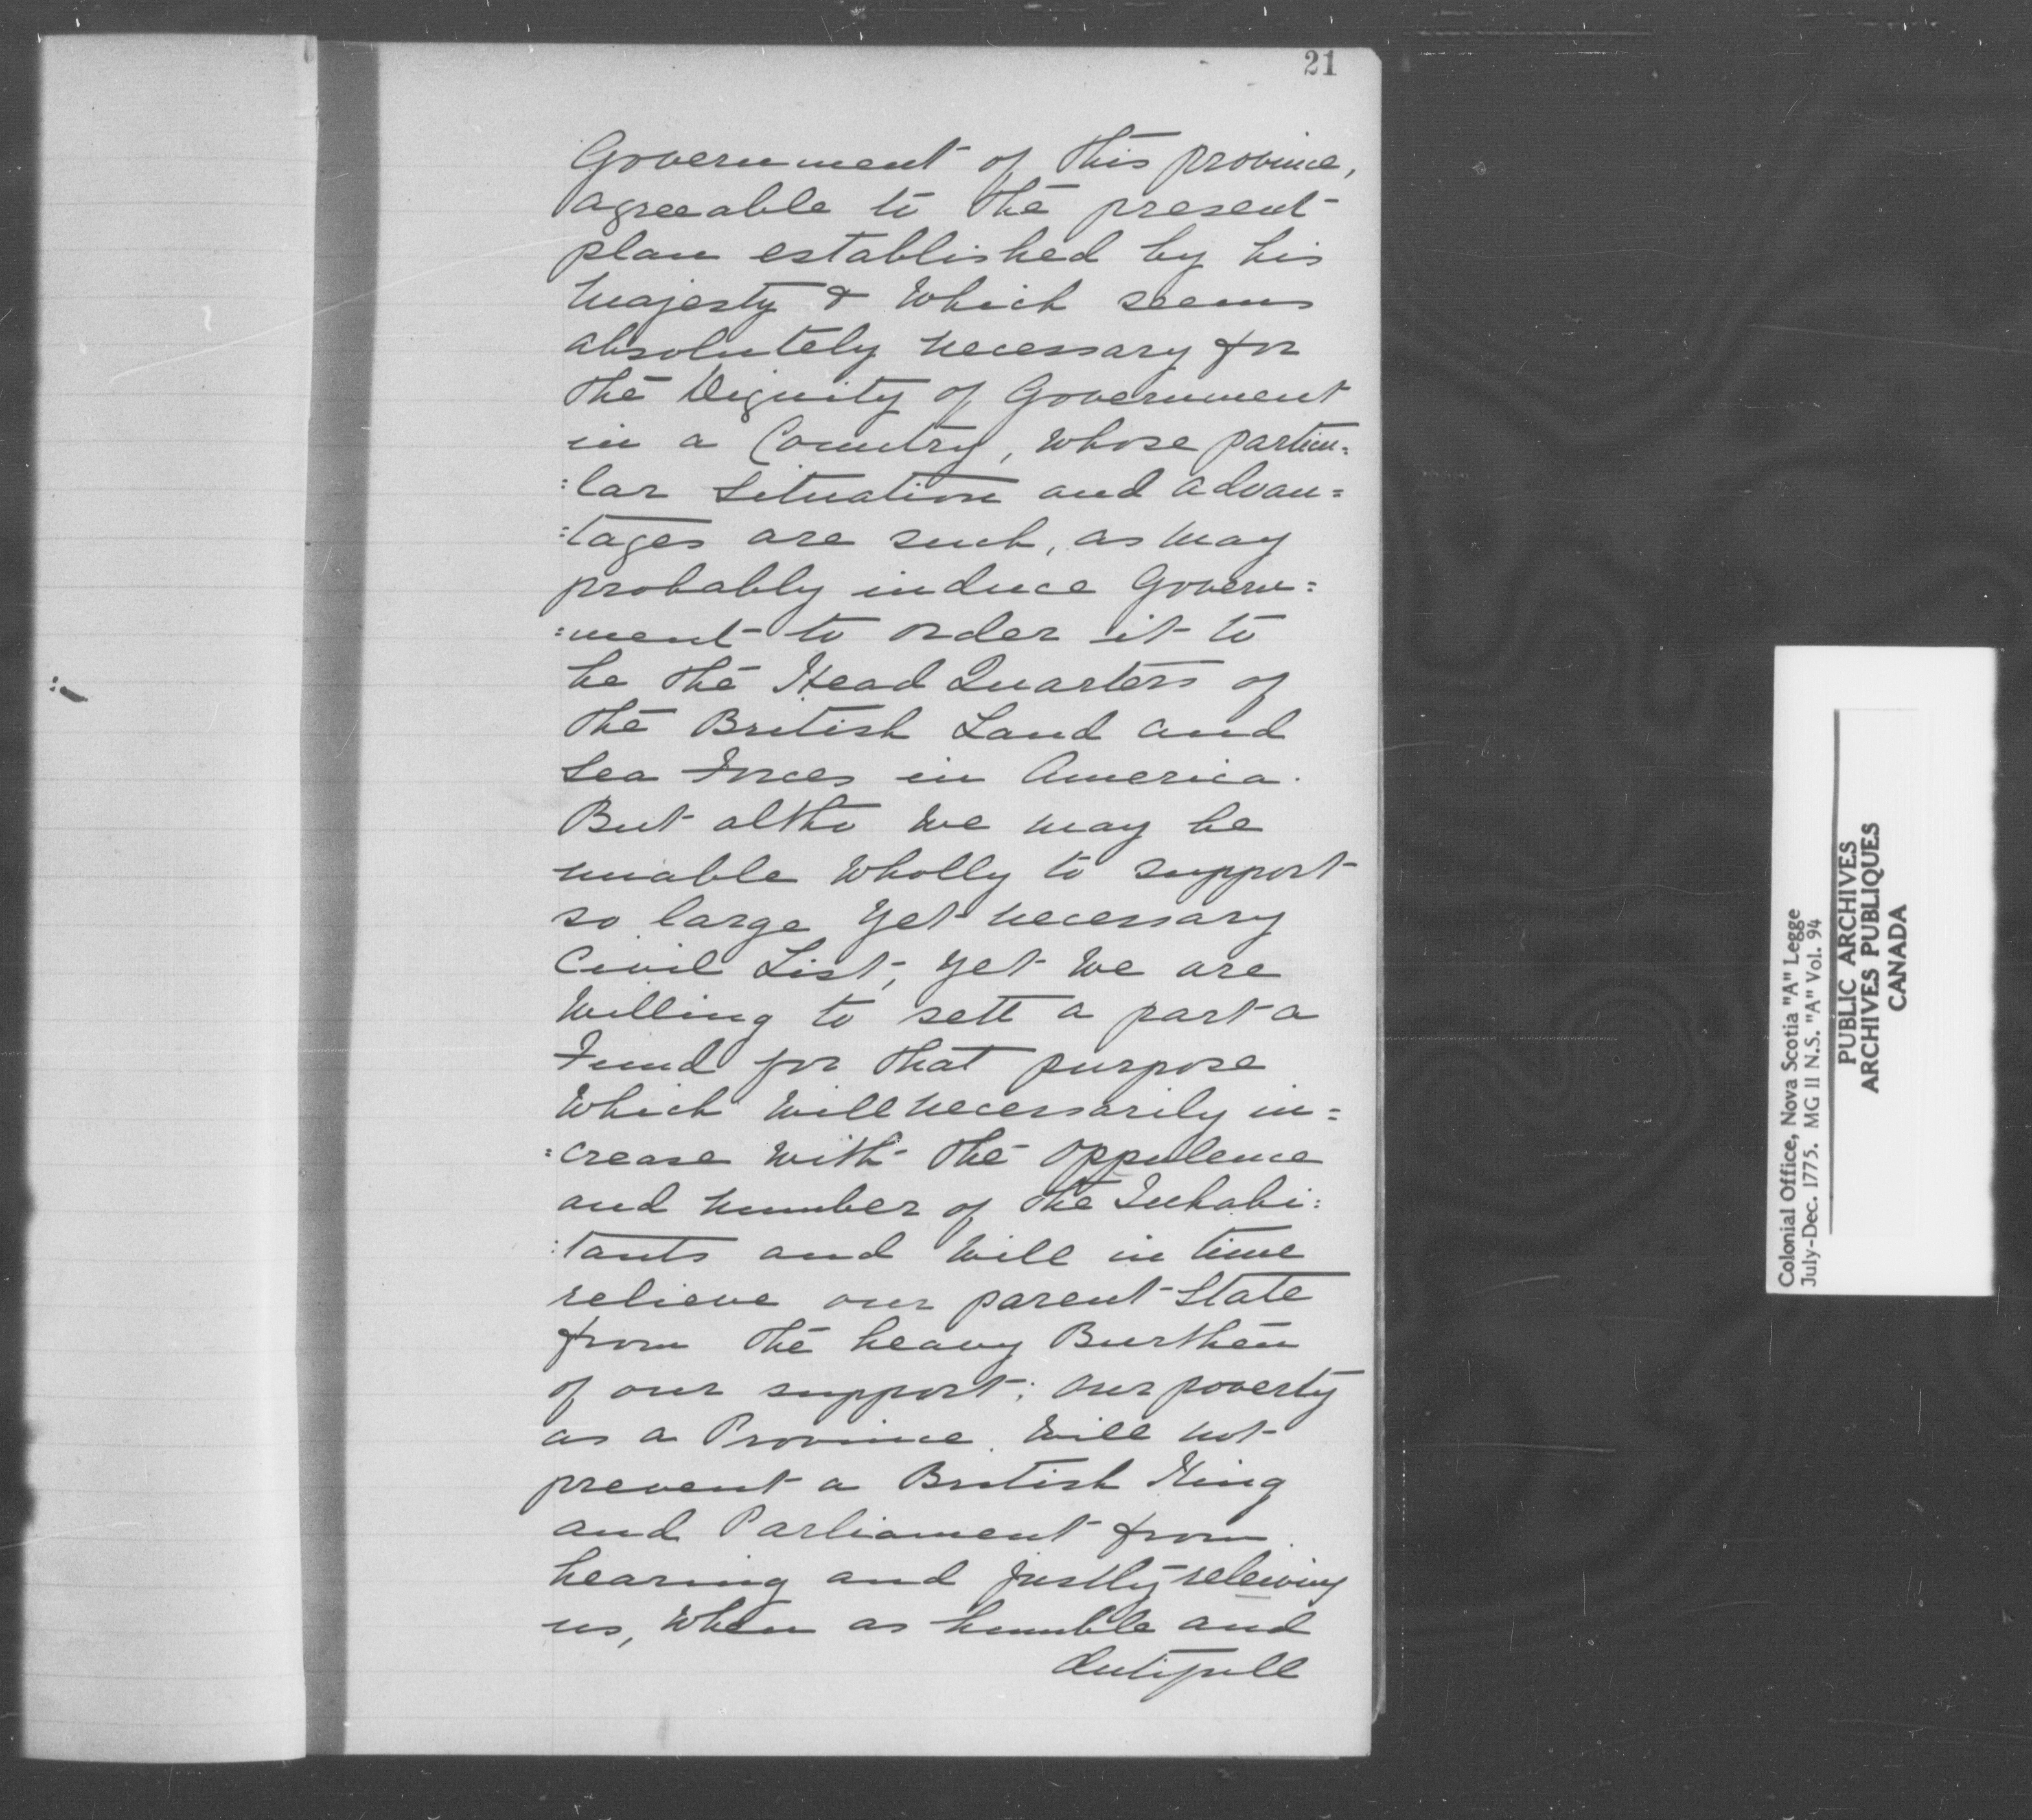 21
Government of this province,
agreeable to the present
plan established by his
Majesty & Which seems
absolutely necessary for
the Dignity of Government
in a Country, whose particu=
:lar Situation and advan=
:tages are such, as may
probably induce Govern=
:ment to order it to
be the Head Quarters of
the British Land and
Sea Forces in America.
But altho We may be
unable Wholly to support
so large Yet necessary
Civil List, yet We are
Willing to sett a part a
Fund for that purpose
Which Will necessarily in=
:crease With the Oppulence
and number of the Inhabi:
:tants and Will in time
relieve our parent State
from the heavy Burthen
of our support; Our poverty
as a Province Will not
prevent a British King
and Parliament from
hearing and justly releiving
us, When as humble and
dutifull
Colonial Office, Nova Scotia "A" Legge
July-Dec. 1775. MG II N.S. "A" Vol. 94
PUBLIC ARCHIVES
ARCHIVES PUBLIQUES
CANADA